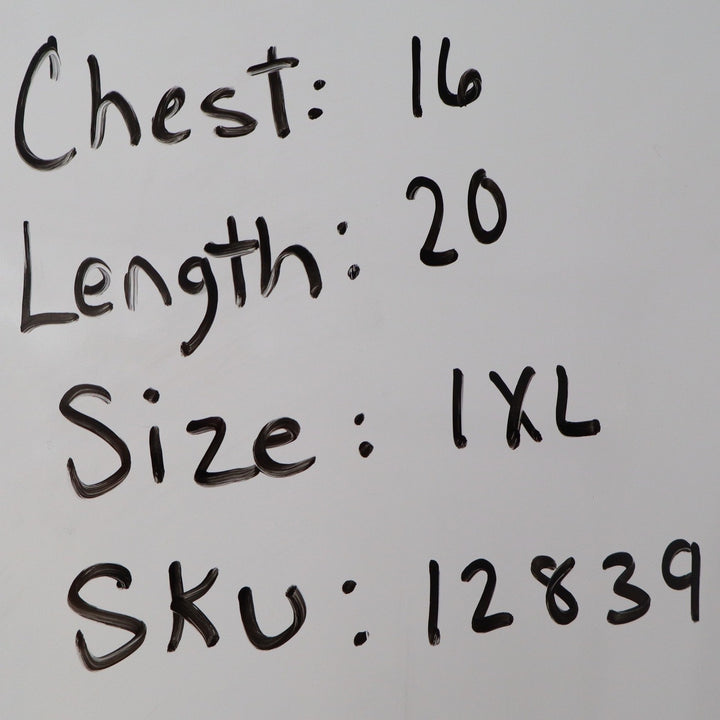 Chest: 16
Length: 20
Size: 1XL
SKU: 12839